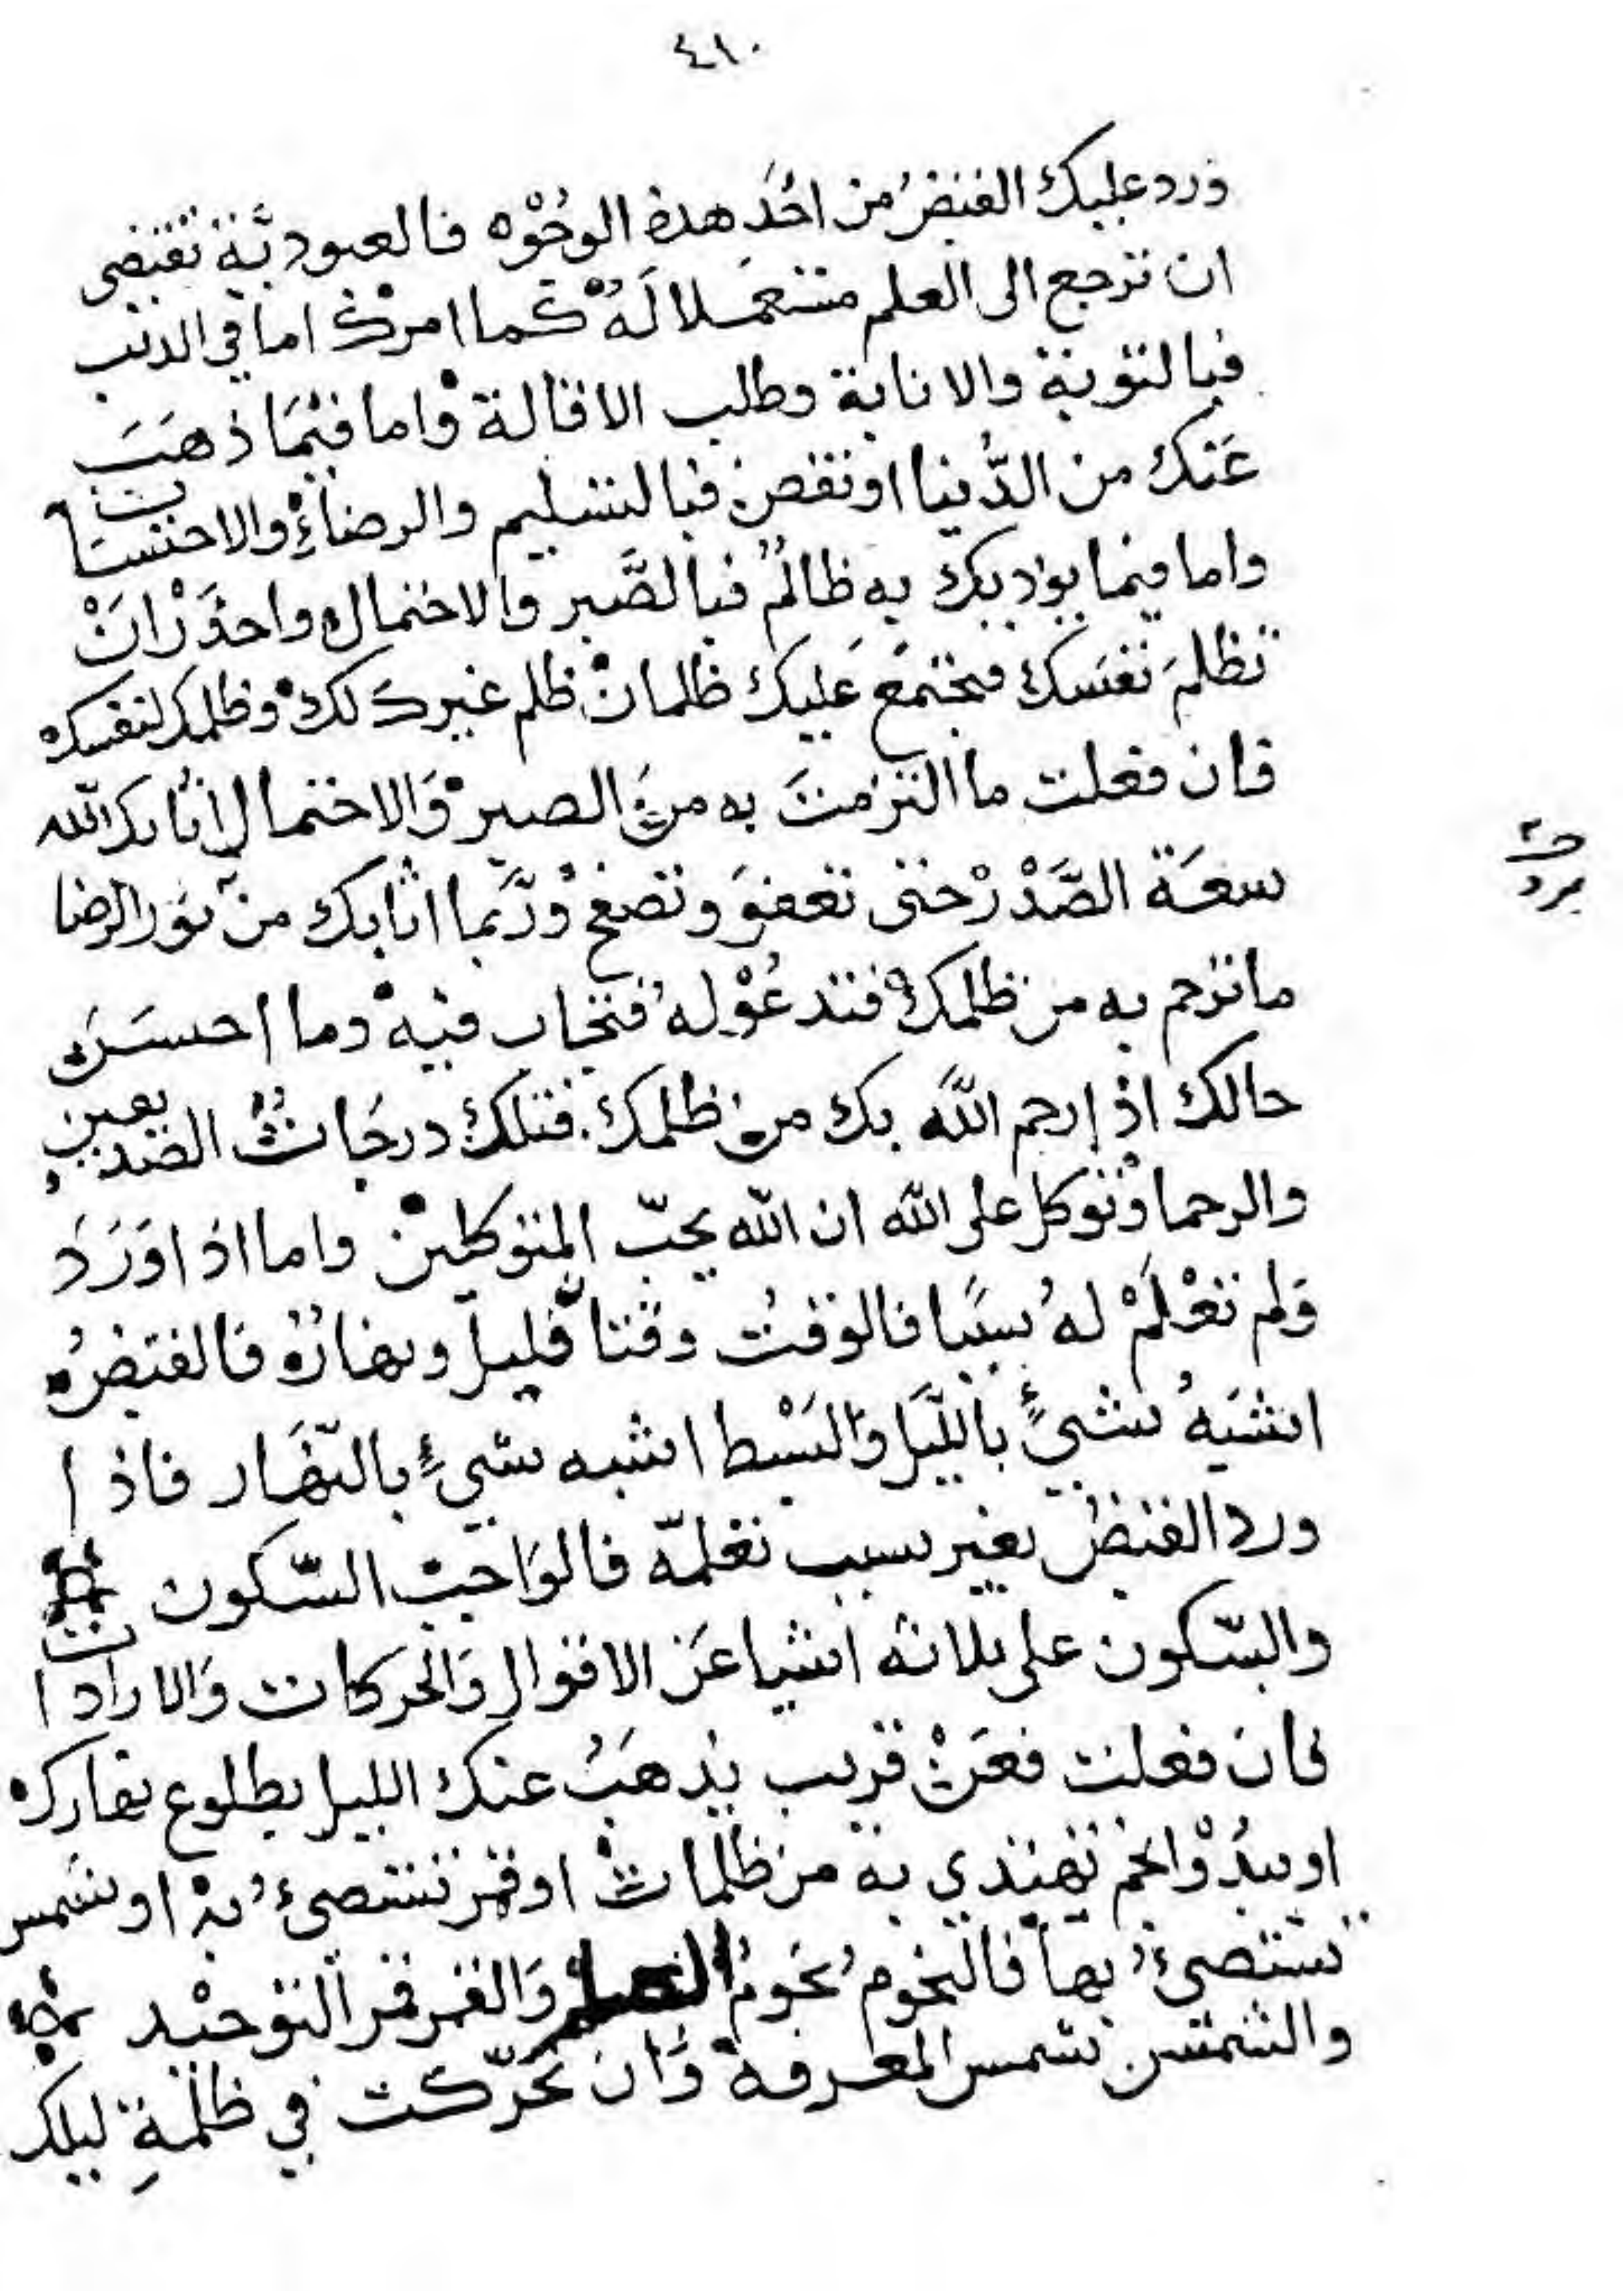 ٤١٠
ورد عليك القبض من احد هذه الوجوه فالعبودية تقتضى
ان ترجع الى العلم مستعملا له كما امرك اما فى الذنب
فبالتوبة والانابة وطلب الاقالة واما فيما ذهب
عنك من الدنيا او نقص فبالتسليم والرضاء والاحتساب
واما فيما يؤذيك به ظالم فبالصبر والاحتمال واحذر ان
تظلم نفسك فيجتمع عليك ظلمان ظلم غيرك لك وظلمك لنفسك
فان فعلت ما التزمت به من الصبر والاحتمال اثابك الله
سعة الصدر حتى تعفو وتصفح وربما اثابك من نور الرضا
ما ترحم به من ظلمك فتدعو له فتجاب فيه وما احسن
حالك اذ ارحم الله بك من ظلمك فتلك درجات الصديقين
والرحما وتوكل على الله ان الله يحب المتوكلين واما اذا ورد
ولم تعلم له سببا فالوقت وقتا قليل ونهاره فالقبض
اشبه شيء بالليل والبسط اشبه شيء بالنهار فاذا
ورد القبض بغير سبب تعلمه فالواجب السكون
والسكون على ثلاثه اشيا عن الاقوال والحركات والارادات
فان فعلت فعن قريب يذهب عنك الليل بطلوع نهارك
او يبدو انجم تهتدي به من ظلمات او قمر تستضىء به او شمس
تستضيء بها فالنجوم نجوم العلم والقمر قمر التوحيد
والشمس شمس المعرفة وان تحركت في ظلمة ليلك